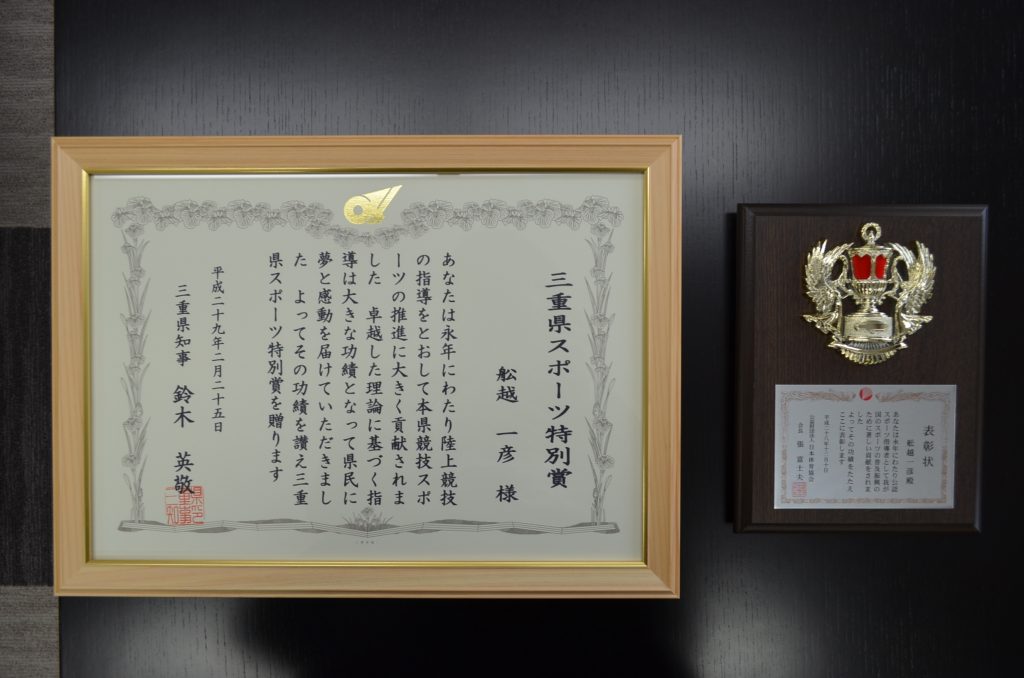 三重県スポーツ特別賞
舩越 一彦 様
あなたは永年にわたり陸上競技
の指導をとおして本県競技スポ
ーツの推進に大きく貢献されま
した 卓越した理論に基づく指
導は大きな功績となって県民に
夢と感動を届けていただきまし
た よってその功績を讃え三重
県スポーツ特別賞を贈ります
平成二十九年二月二十五日
三重県知事 鈴木 英敬
表彰状
舩越一彦殿
あなたは永年にわたり公認
スポーツ指導者として我が
国のスポーツの普及振興の
ために著しい貢献をされま
した
よってその功績をたたえ
ここに表彰します
公益財団法人日本体育協会
会長 張 富士夫